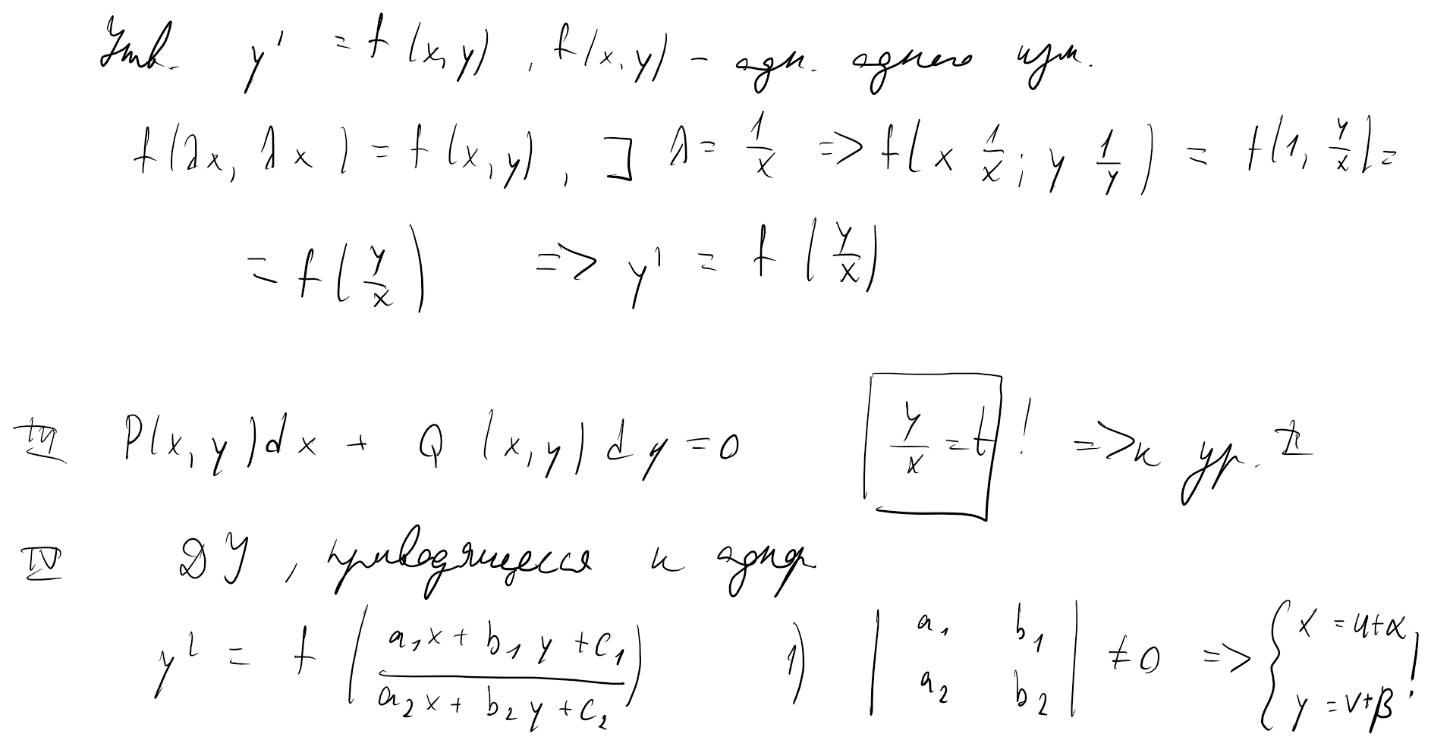 Утв. y' = f(x,y), f(x,y) – одн. одного изм.
f(λx, λx) = f(x,y), ] λ = 1/x => f(x 1/x; y 1/y) = f(1, y/x) =
= f(y/x) => y' = f(y/x)
P(x,y)dx + Q(x,y)dy = 0 y/x = t ! => к ур. I
IV ДУ, приводящиеся к однор
y' = f((a₁x + b₁y + c₁)/(a₂x + b₂y + c₂)) 1) |a₁ b₁; a₂ b₂| ≠ 0 => {x = u+α, y = v+β !